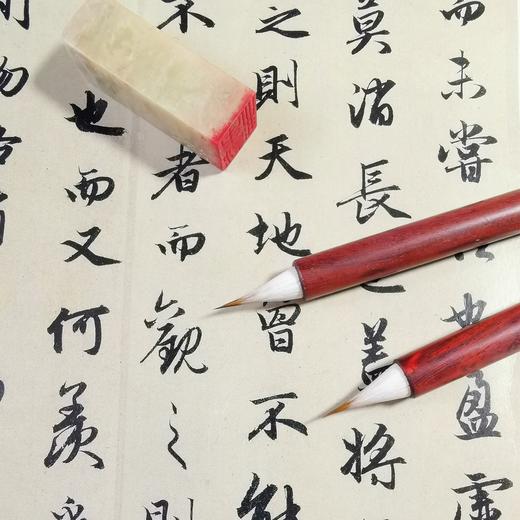 而未嘗也盈虛
莫消長也蓋將
之則天地曾不能
不者而觀之則
也而又何羨乎